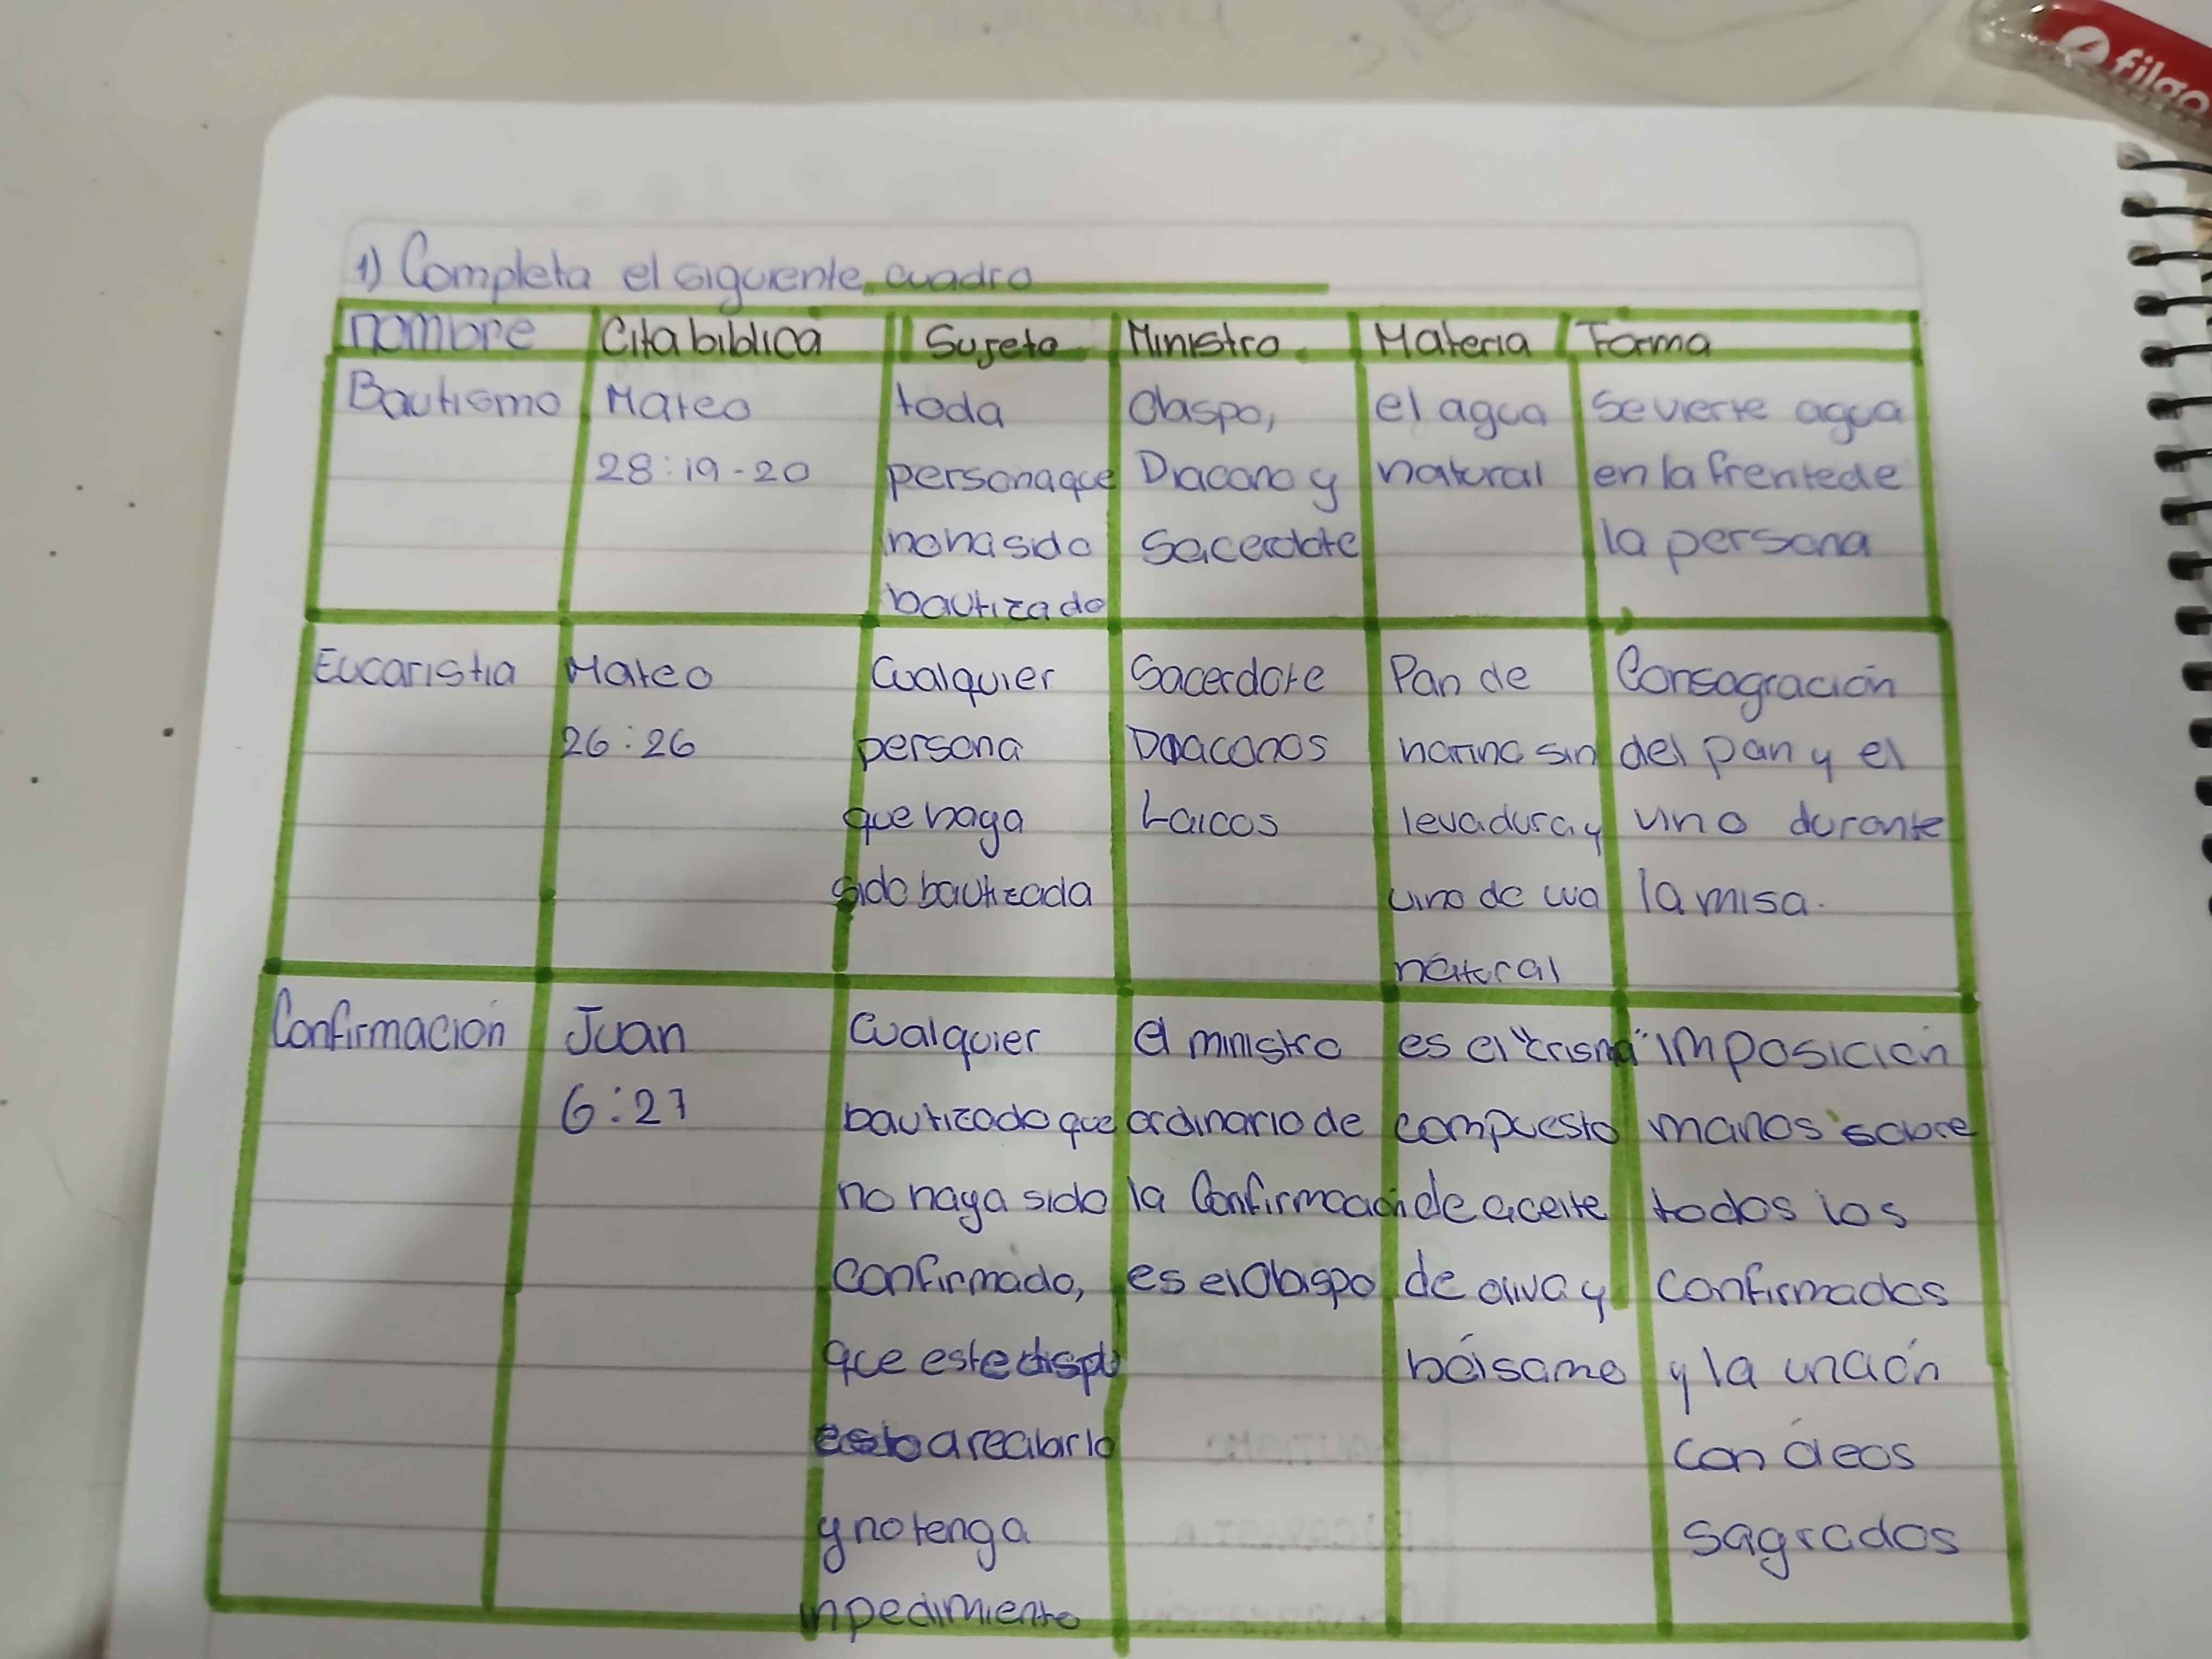 filgo
1) Completa el siguiente cuadro
nombre Cita biblica Sujeto Ministro Materia Forma
Bautismo Mateo toda Obispo, el agua Se vierte agua
28:19-20 persona que Diacono y natural en la frente de
no ha sido Sacerdote la persona
bautizado
Eucaristia Mateo Cualquier Sacerdote Pan de Consagración
26:26 persona Diaconos harina sin del pan y el
que haga Laicos levadura y vino durante
sido bautizada vino de uva la misa.
natural
Confirmación Juan Cualquier el ministro es el "crisma" imposición
6:27 bautizado que ordinario de compuesto manos sobre
no haya sido la Confirmación de aceite todos los
confirmado, es el Obispo de oliva y confirmados
que este dispu bálsamo y la unción
esto a recibirlo con óleos
y no tenga sagrados
inpedimiento